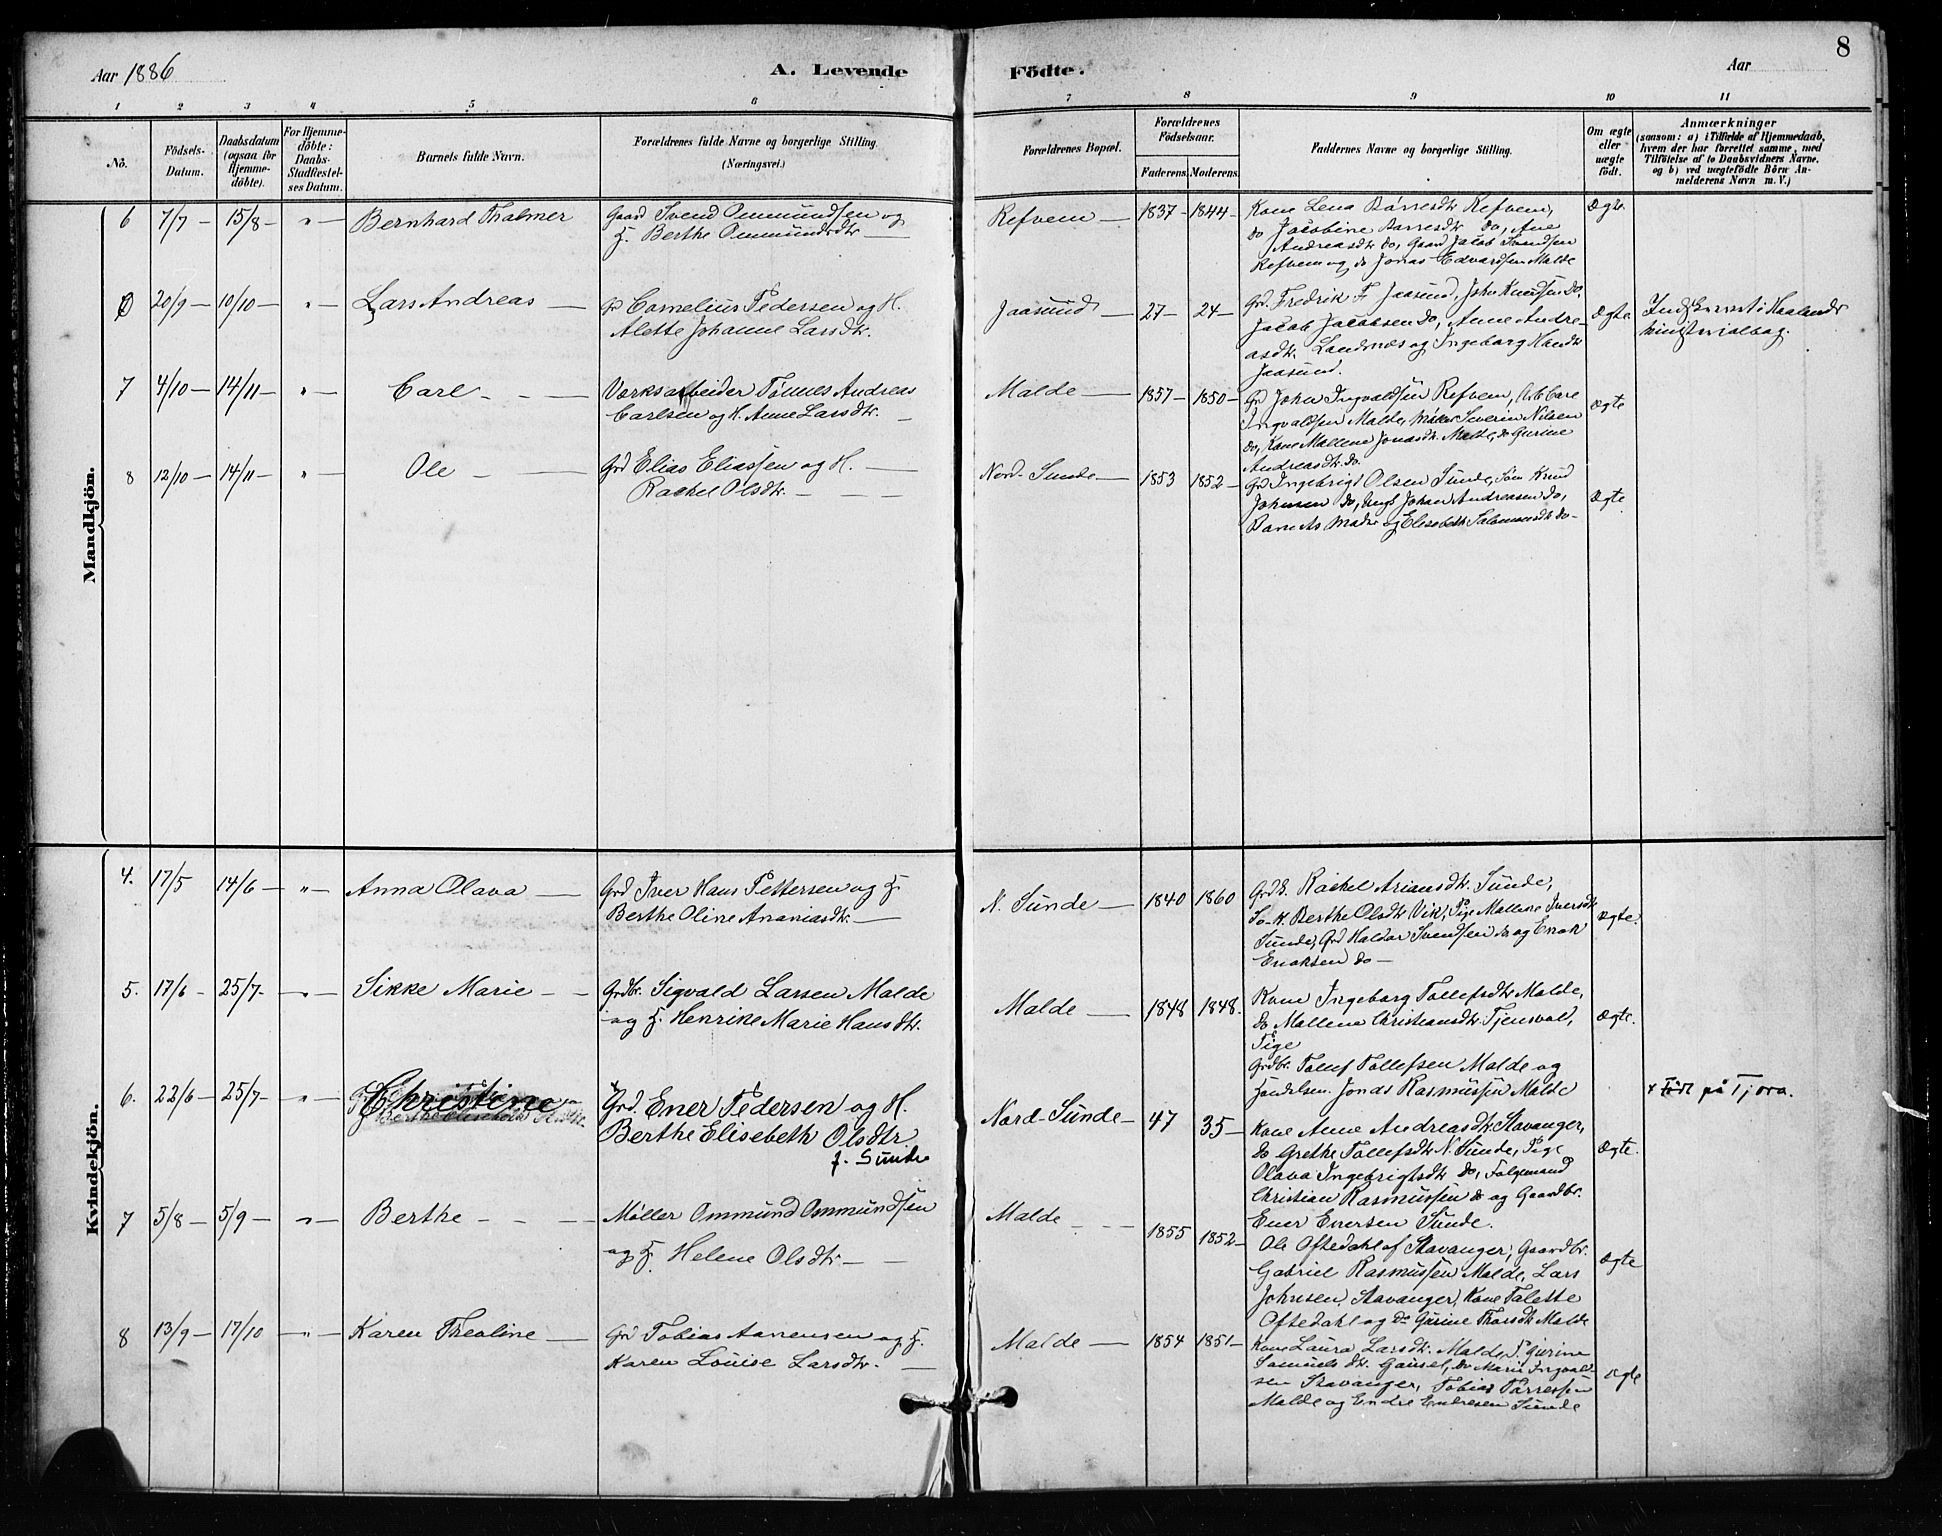 Aar 1886
A. Levende Födte.
Aar
8
1 2 3 4 5 6 7 8 9 10 11
No.
Födsels-Datum.
Daabsdatum (ogsaa for Hjemme-döbte).
For Hjemme-döbte: Daabs-Stadfæstel-ses Datum.
Barnets fulde Navn.
Forældrenes fulde Navne og borgerlige Stilling.
(Næringsvei.)
Forældrenes Bopæl.
Forældrenes Födselsaar.
Faderens. Moderens.
Faddernes Navne og borgerlige Stilling.
Om ægte eller uægte födt.
Anmærkninger
(saasom: a) i Tilfælde af Hjemmedaab, hvem der har forrettet samme, med Tilföielse af to Daabsvidners Navne, og b) ved uægtefödte Börn Anmelderens Navn m. V.)
Mandkjön.
6 7/7 – 15/8 – " – Bernhard Thalmer
Gaard Svend Ommundsen og
H. Berthe Ommundsdtr —
Refvem — 1837 – 1844 –
Kone Lena Börresdtr Refvem,
do Jacobine Börresdtr do, Ane
Andreasdtr do, Gaard Jacob Svendsen
Refvem og do Jonas Edvardsen Malde
Ægte
0 20/9 – 10/10 – " Lars Andreas —
Cornelius Pedersen og H.
Alette Johanne Larsdtr.
Jaasund — 27 – 24 –
Grd. Fredrik F. Jaasund, John Knudsen do,
Jacob Jacobsen do, Anne Andre-
asdtr. Sandnæs og Ingeborg Hansdtr
Jaasund.
Ægte
Indskrevet i Haalands
ministerialbog.
7 4/10 – 14/11 – " – Carl – – —
Værksarbeider Tönnes Andreas
Carlsen og H. Anne Larsdtr. –
Malde — 1857 – 1850 –
Grd John Ingvaldsen Refvem, Arb Carl
Ingvaldsen Malde, Møller Severin Nilsen
do, Kone Mallene Jonasdtr. Malde, do Gurine
Andreasdtr do.
Ægte
8 12/10 – 14/11 – " Ole – —
Grd Elias Eliassen og H. —
Rachel Olsdtr. – — —
Nord-Sunde – 1853 1852 –
Grd Ingebrigt Olsen Sunde, Søn Knud
Johnsen do, Ungk Johan Andreasen do,
Barnets Moder og Elisebeth Salomonsdtr do –
Ægte
Kvindekjön.
4. 17/5 14/6 – " – Anna Olava —
Grd Iver Hans Pettersen og H.
Berthe Oline Ananiasdtr. —
N. Sunde — 1840 1860
Grdk. Rachel Ariansdtr. Sunde,
So-k. Berthe Olsdtr Vik, Pige Mallene Iversdtr
Sunde, Grd Haldor Svendsen do og Enok
Enoksen do –
Ægte.
5. 17/6 – 25/7 – " – Sikke Marie – –
Grdbr. Sigvald Larsen Malde
og H. Henrike Marie Hansdtr.
Malde — 1848 1848.
Kone Ingeborg Tollefsdtr Malde,
do Mallene Christiansdtr Tjensvol,
Pige
Grdbr. Tollef Tollefsen Malde og
Handelsm. Jonas Rasmussen Malde
Ægte.
6. 22/6 – 25/7 – " Christine
Grd. Ener Pedersen og H.
Berthe Elisebeth Olsdtr.
f. Sunde
Nord-Sunde – 47 35 –
Kone Anne Andreasdtr Stavanger,
do Grethe Tollefsdtr N. Sunde, Pige
Olava Ingebrigtsdtr do, Følgemand
Christian Rasmussen do og Gaardbr.
Ener Enersen Sunde.
Ægte.
x Født på Tjora.
7 5/8 – 5/9 – " – Berthe – – —
Møller Ommund Ommundsen
og H. Helene Olsdtr – —
Malde – – – 1855 1852 –
Ole Oftedahl af Stavanger, Gaardbr.
Gabriel Rasmussen Malde, Lars
Johnsen, Stavanger, Kone Talette
Oftedahl og do Gurine Thorsdtr Malde
Ægte
8 13/9 – 17/10 – " – Karen Theoline —
Grd Tobias Aanensen og H.
Karen Louise Larsdtr. —
Malde — 1854 1851 –
Kone Laura Larsdtr. Malde, P. Gurine
Samuels dtr. Gausel, do Marie Ingvald-
sen Stavanger, Tobias Tørressen
Malde og Endre Endresen Sunde
ægte